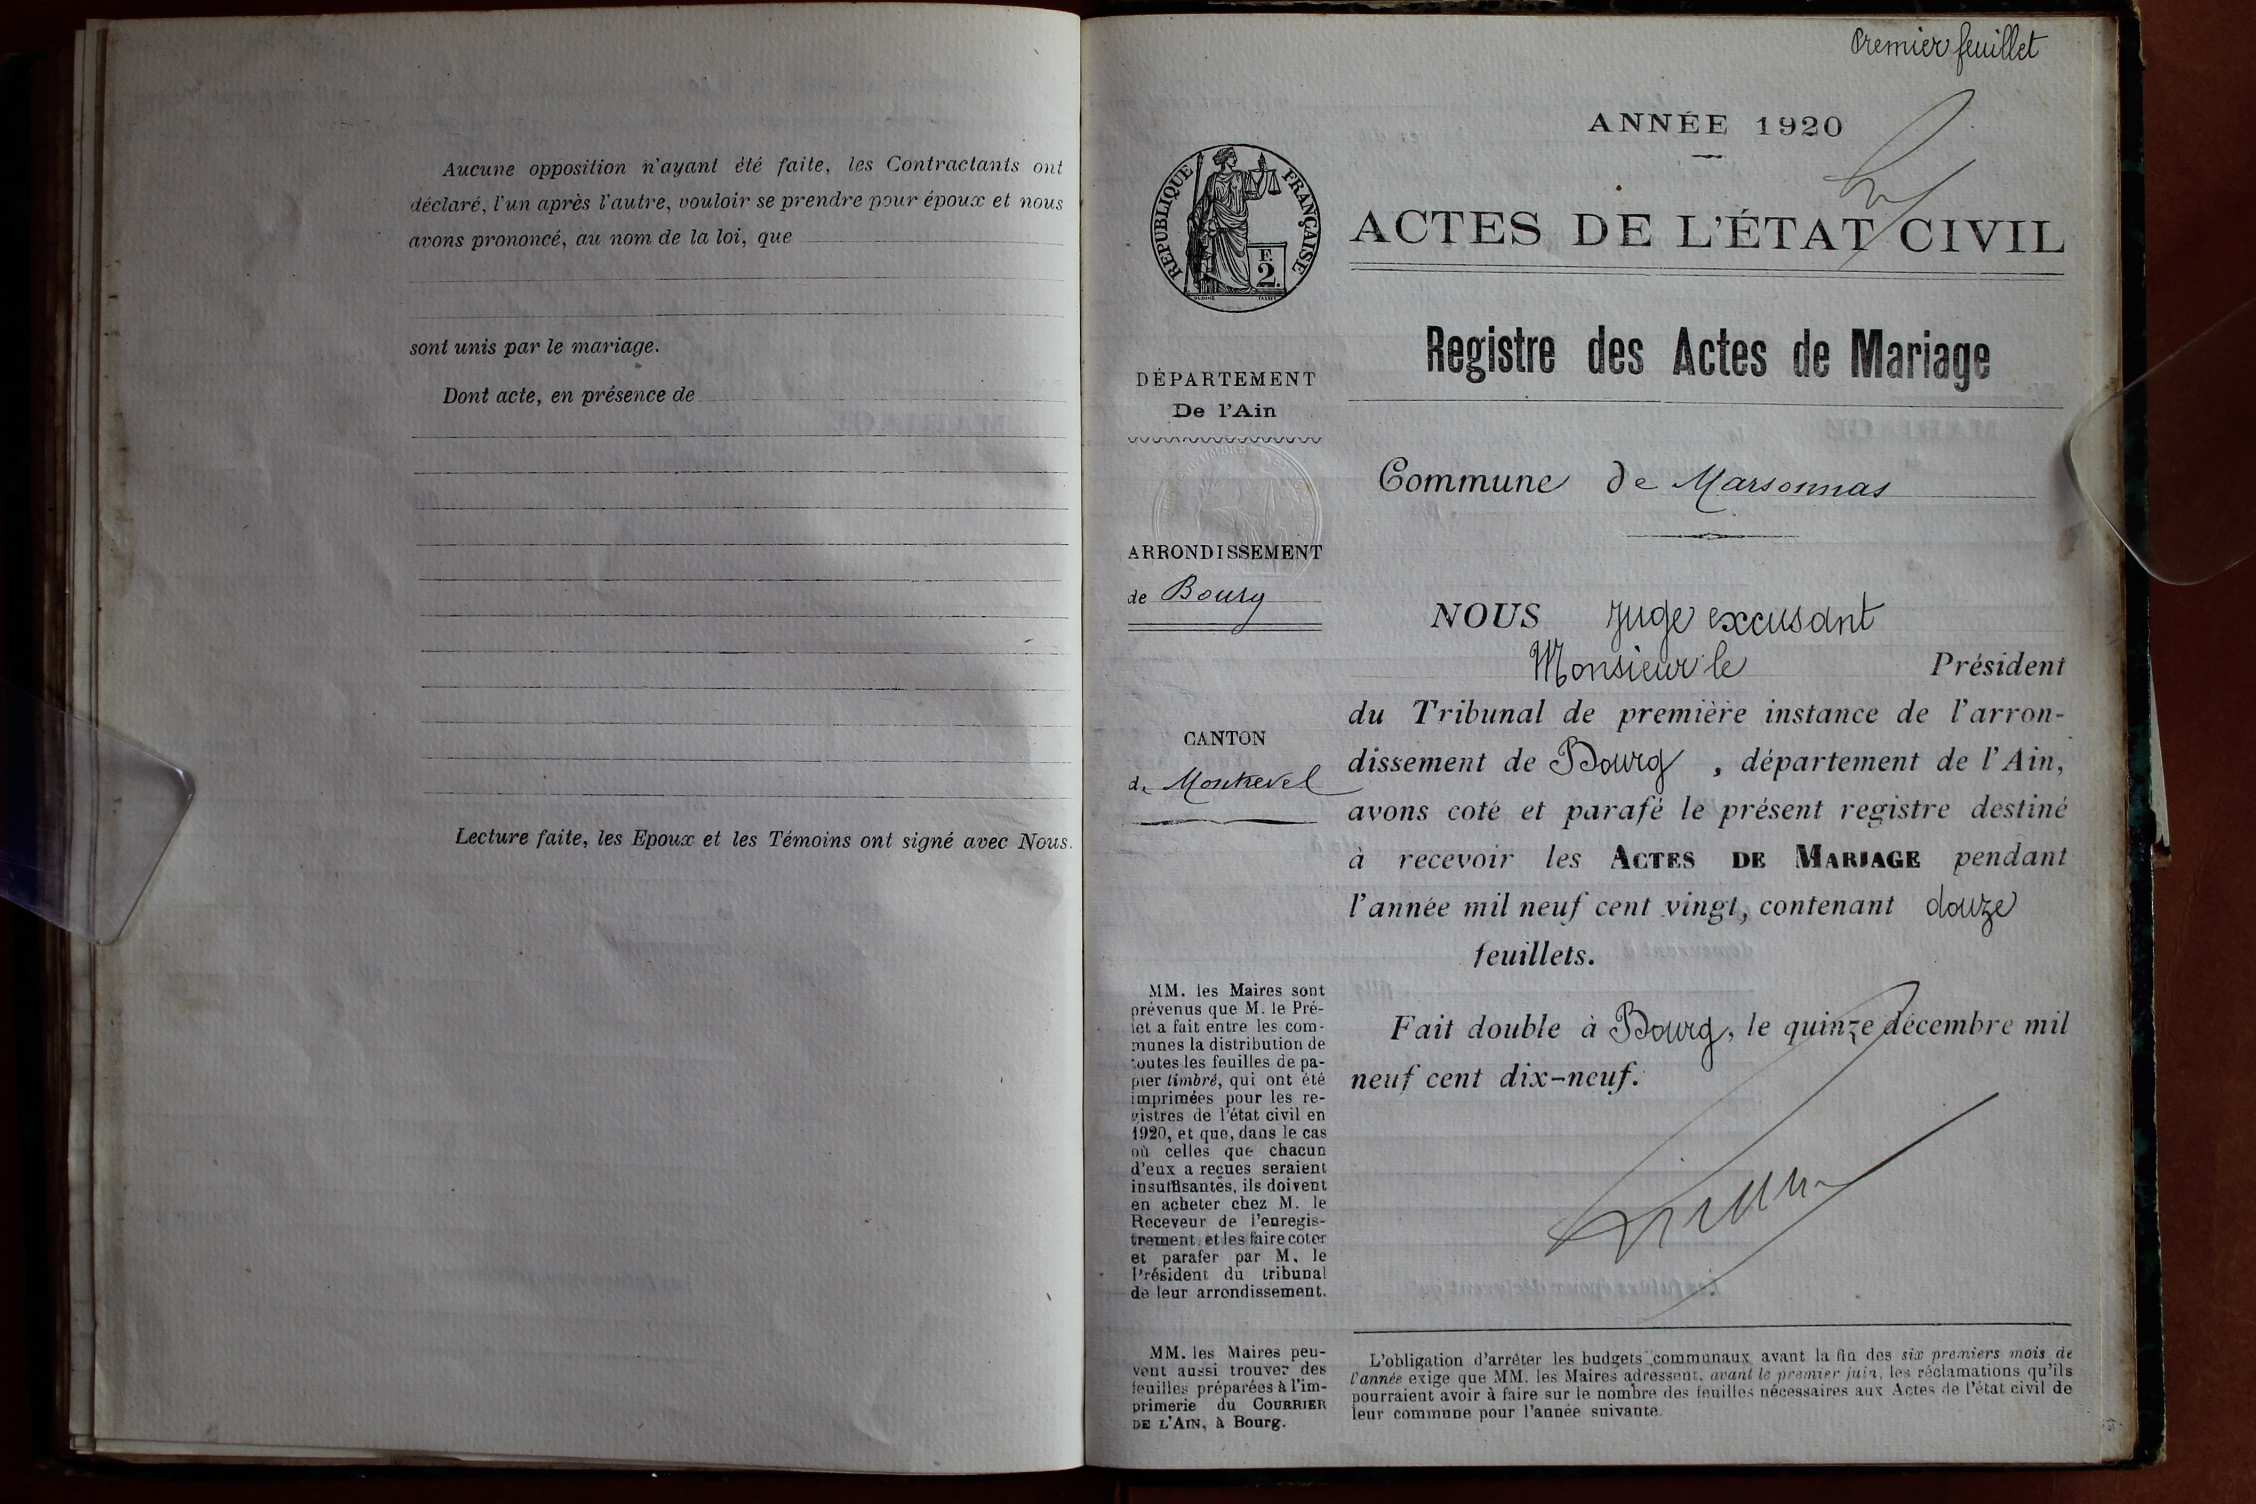 Aucune opposition n'ayant été faite, les Contractants ont
déclaré, l'un après l'autre, vouloir se prendre pour époux et nous
avons prononcé, au nom de la loi, que
sont unis par le mariage.
Dont acte, en présence de
Lecture faite, les Epoux et les Témoins ont signé avec Nous.
Premier feuillet
ANNÉE 1920
RÉPUBLIQUE FRANÇAISE
F.
2.
ACTES DE L'ÉTAT CIVIL
Registre des Actes de Mariage
DÉPARTEMENT
De l'Ain
Commune de Marsonnas
ARRONDISSEMENT
de Bourg
CANTON
de Montrevel
NOUS Juge excusant
Monsieur le Président
du Tribunal de première instance de l'arron-
dissement de Bourg, département de l'Ain,
avons coté et parafé le présent registre destiné
à recevoir les ACTES DE MARIAGE pendant
l'année mil neuf cent vingt, contenant douze
feuillets.
Fait double à Bourg, le quinze décembre mil
neuf cent dix-neuf.
MM. les Maires sont
prévenus que M. le Pré-
fet a fait entre les com-
munes la distribution de
toutes les feuilles de pa-
pier timbré, qui ont été
imprimées pour les re-
gistres de l'état civil en
1920, et que, dans le cas
où celles que chacun
d'eux a reçues seraient
insuffisantes, ils doivent
en acheter chez M. le
Receveur de l'enregis-
trement, et les faire coter
et parafer par M. le
Président du tribunal
de leur arrondissement.
MM. les Maires peu-
vent aussi trouver des
feuilles préparées à l'im-
primerie du COURRIER
DE L'AIN, à Bourg.
L'obligation d'arrêter les budgets communaux avant la fin des six premiers mois de
l'année exige que MM. les Maires adressent, avant le premier juin, les réclamations qu'ils
pourraient avoir à faire sur le nombre des feuilles nécessaires aux Actes de l'état civil de
leur commune pour l'année suivante.